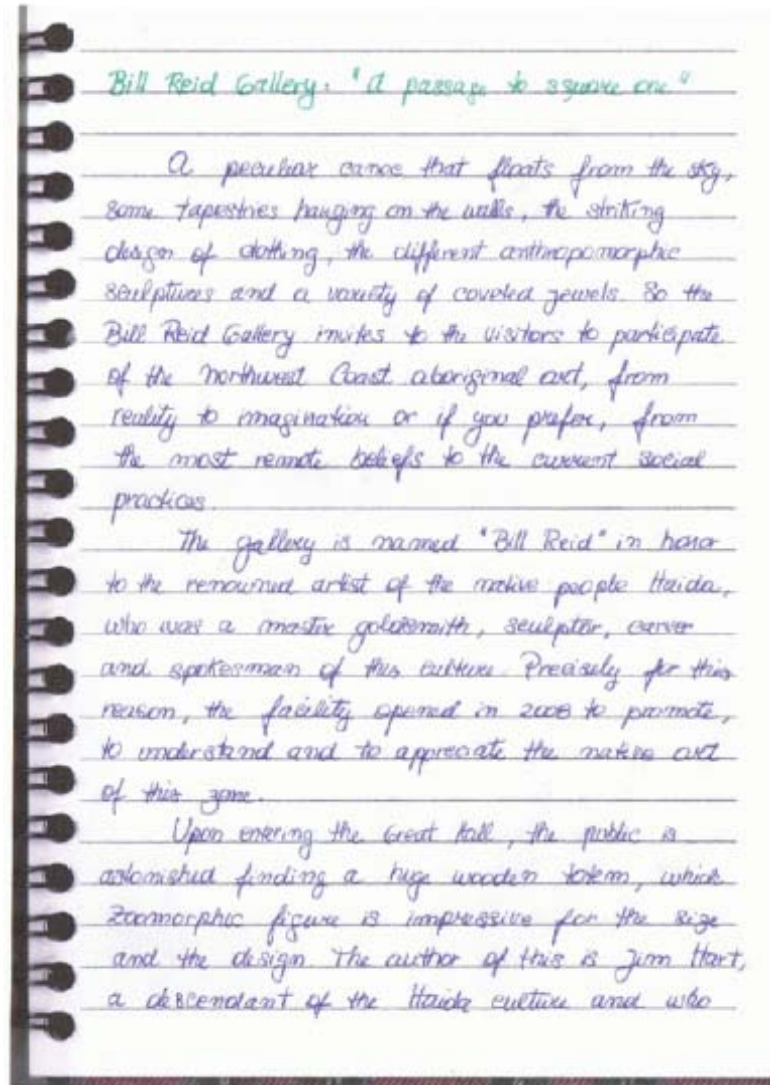 Bill Reid Gallery: "A passage to square one"
A peculiar canoe that floats from the sky,
some tapestries hanging on the walls, the striking
design of clothing, the different anthropomorphic
sculptures and a variety of coveted jewels. So the
Bill Reid Gallery invites to the visitors to participate
of the northwest Coast aboriginal art, from
reality to imagination or if you prefer, from
the most remote beliefs to the current social
practices.
The gallery is named "Bill Reid" in honor
to the renowned artist of the native people Haida,
who was a master goldsmith, sculptor, carver
and spokesman of this culture. Precisely for this
reason, the facility opened in 2008 to promote,
to understand and to appreciate the native art
of this zone.
Upon entering the Great Hall, the public is
astonished finding a huge wooden totem, which
zoomorphic figure is impressive for the size
and the design. The author of this is Jim Hart,
a descendant of the Haida culture and who